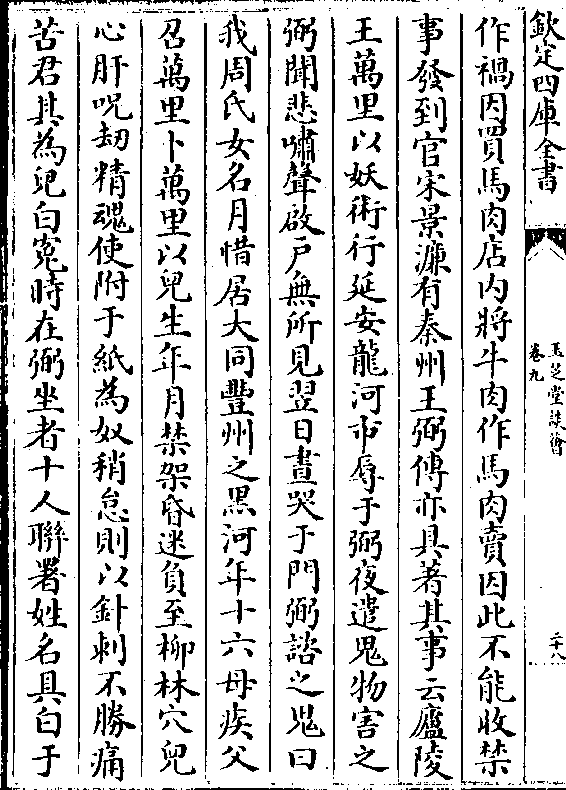 欽定四庫全書
玉芝堂談薈
卷九
二十八
作禍因買馬肉店内將牛肉作馬肉賣因此不能收禁
事發到官宋景濂有秦州王弼傳亦具著其事云廬陵
王萬里以妖術行延安龍河市辱于弼夜遣鬼物害之
弼聞悲嘯聲啟户無所見翌日晝哭于門弼詰之鬼曰
我周氏女名月惜居大同豐州之黒河年十六母疾父
召萬里卜萬里以兒生年月禁架昏迷負至柳林穴兒
心肝呪刧精魂使附于紙為奴稍怠則以針刺不勝痛
苦君其為兒白寃時在弼坐者十人聯署姓名具白于